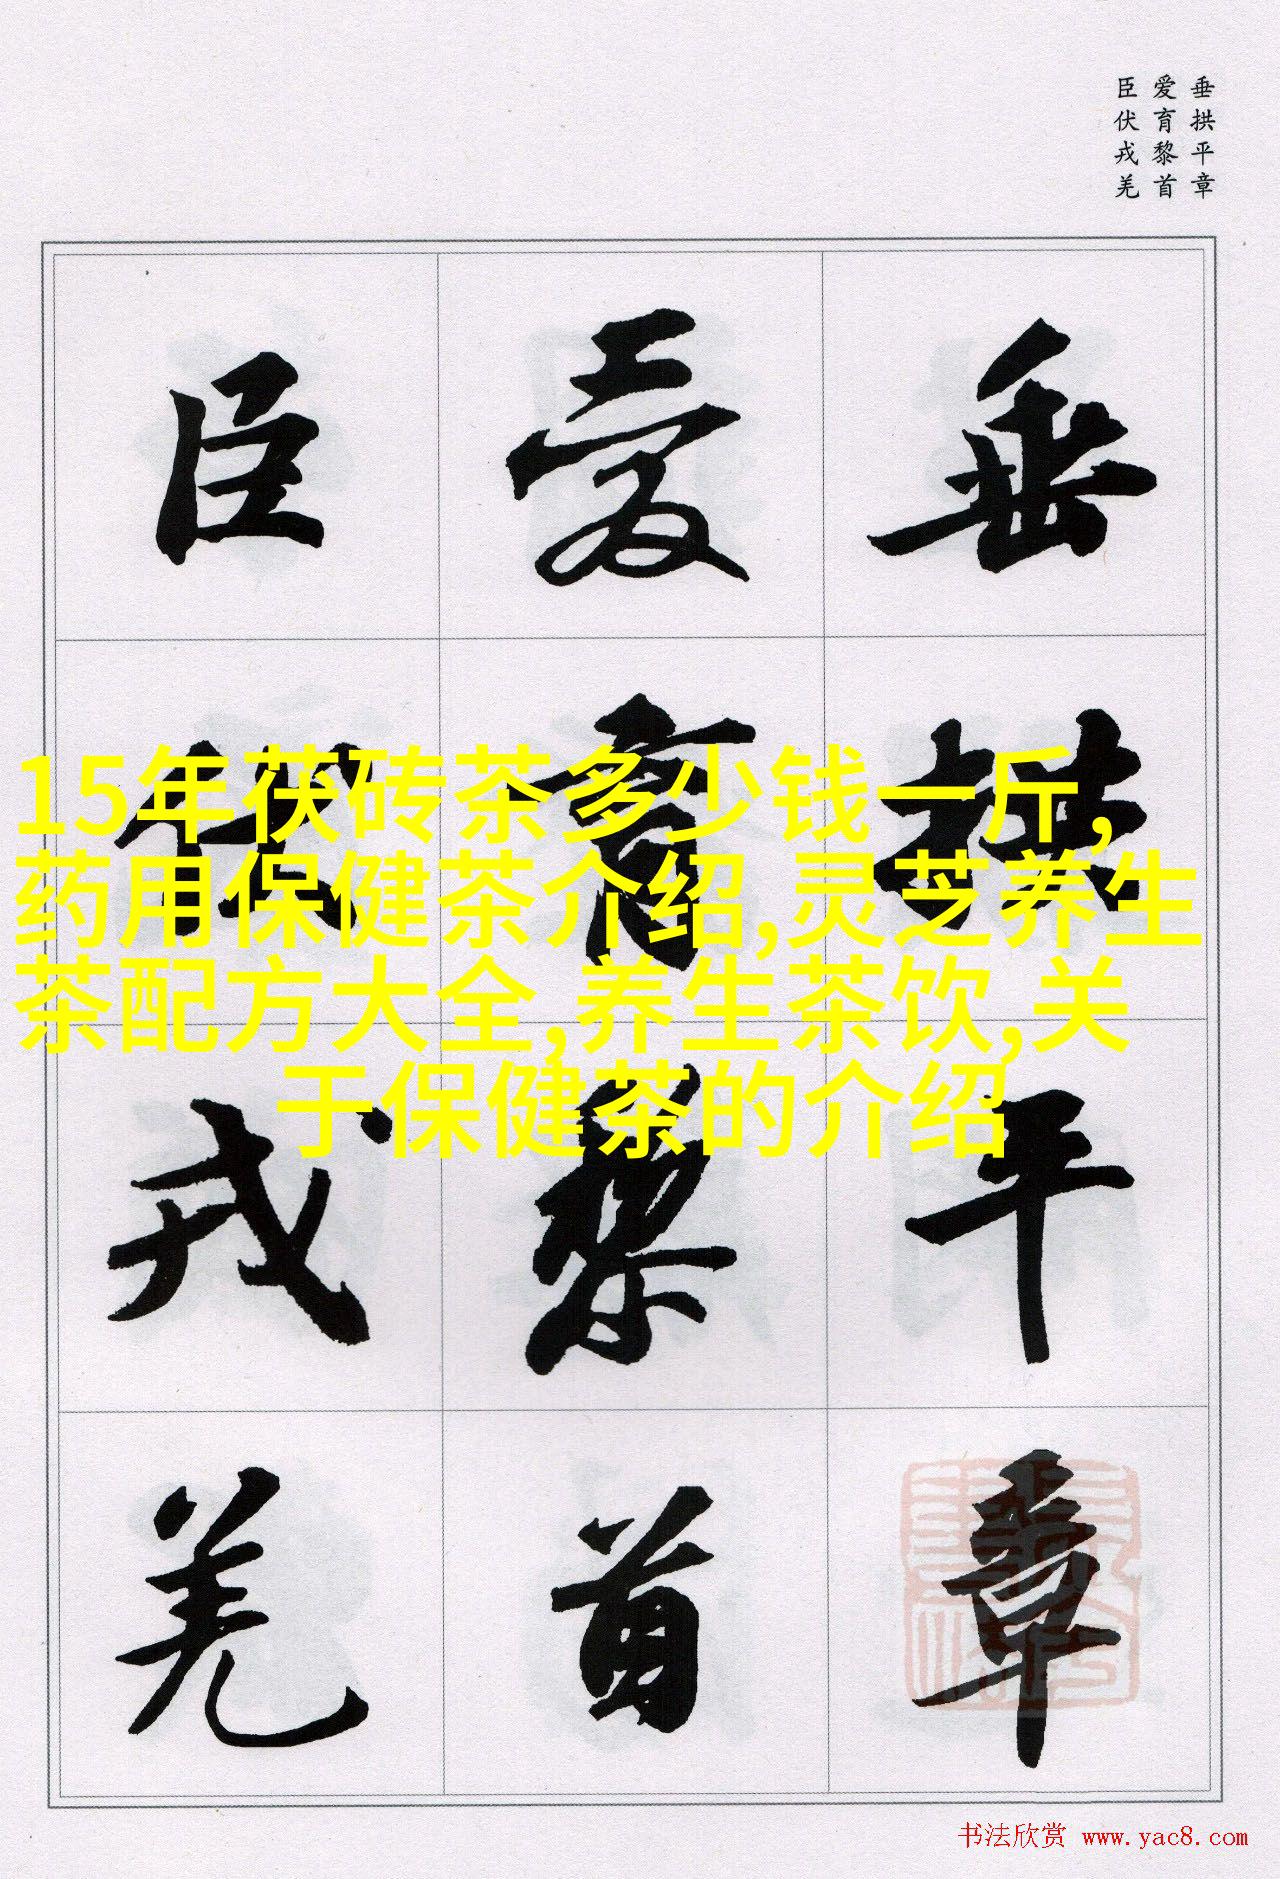 垂拱平章
爱育黎首
臣伏戎羌
垂拱平章
爱育黎首
臣伏戎羌
15年茯砖茶多少钱一斤,
药用保健茶介绍,灵芝养生
茶配方大全,养生茶饮,关
于保健茶的介绍
书法欣赏 www.yac8.com